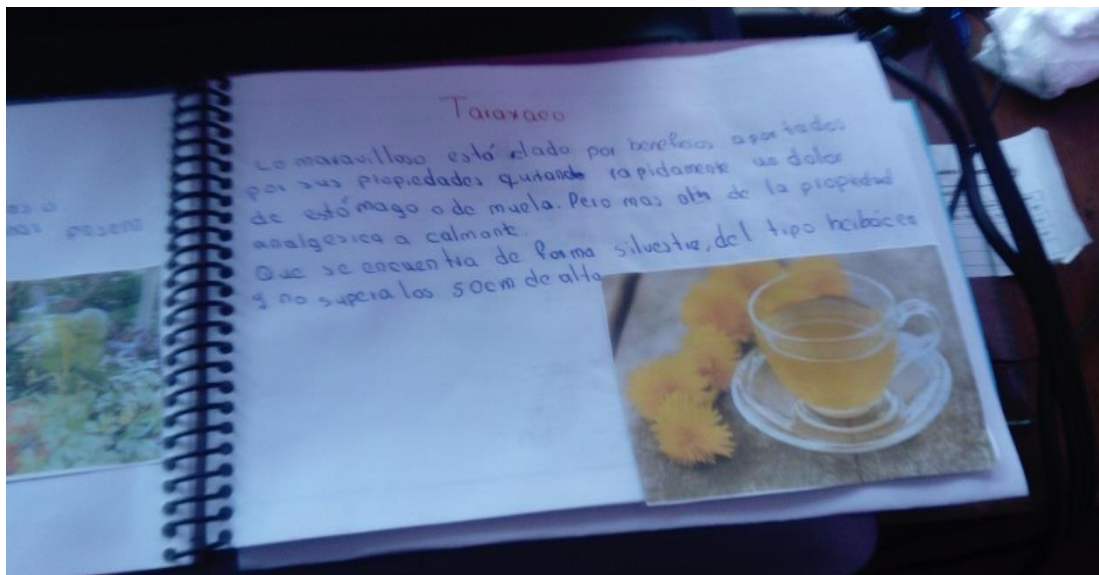 Taraxaco
Lo maravilloso está dado por beneficios aportados
por sus propiedades quitando rapidamente un dolor
de estómago o de muela. Pero mas alta de la propiedad
analgesica a calmante.
Que se encuentra de forma silvestre, del tipo herbácea
y no supera los 50cm de alto